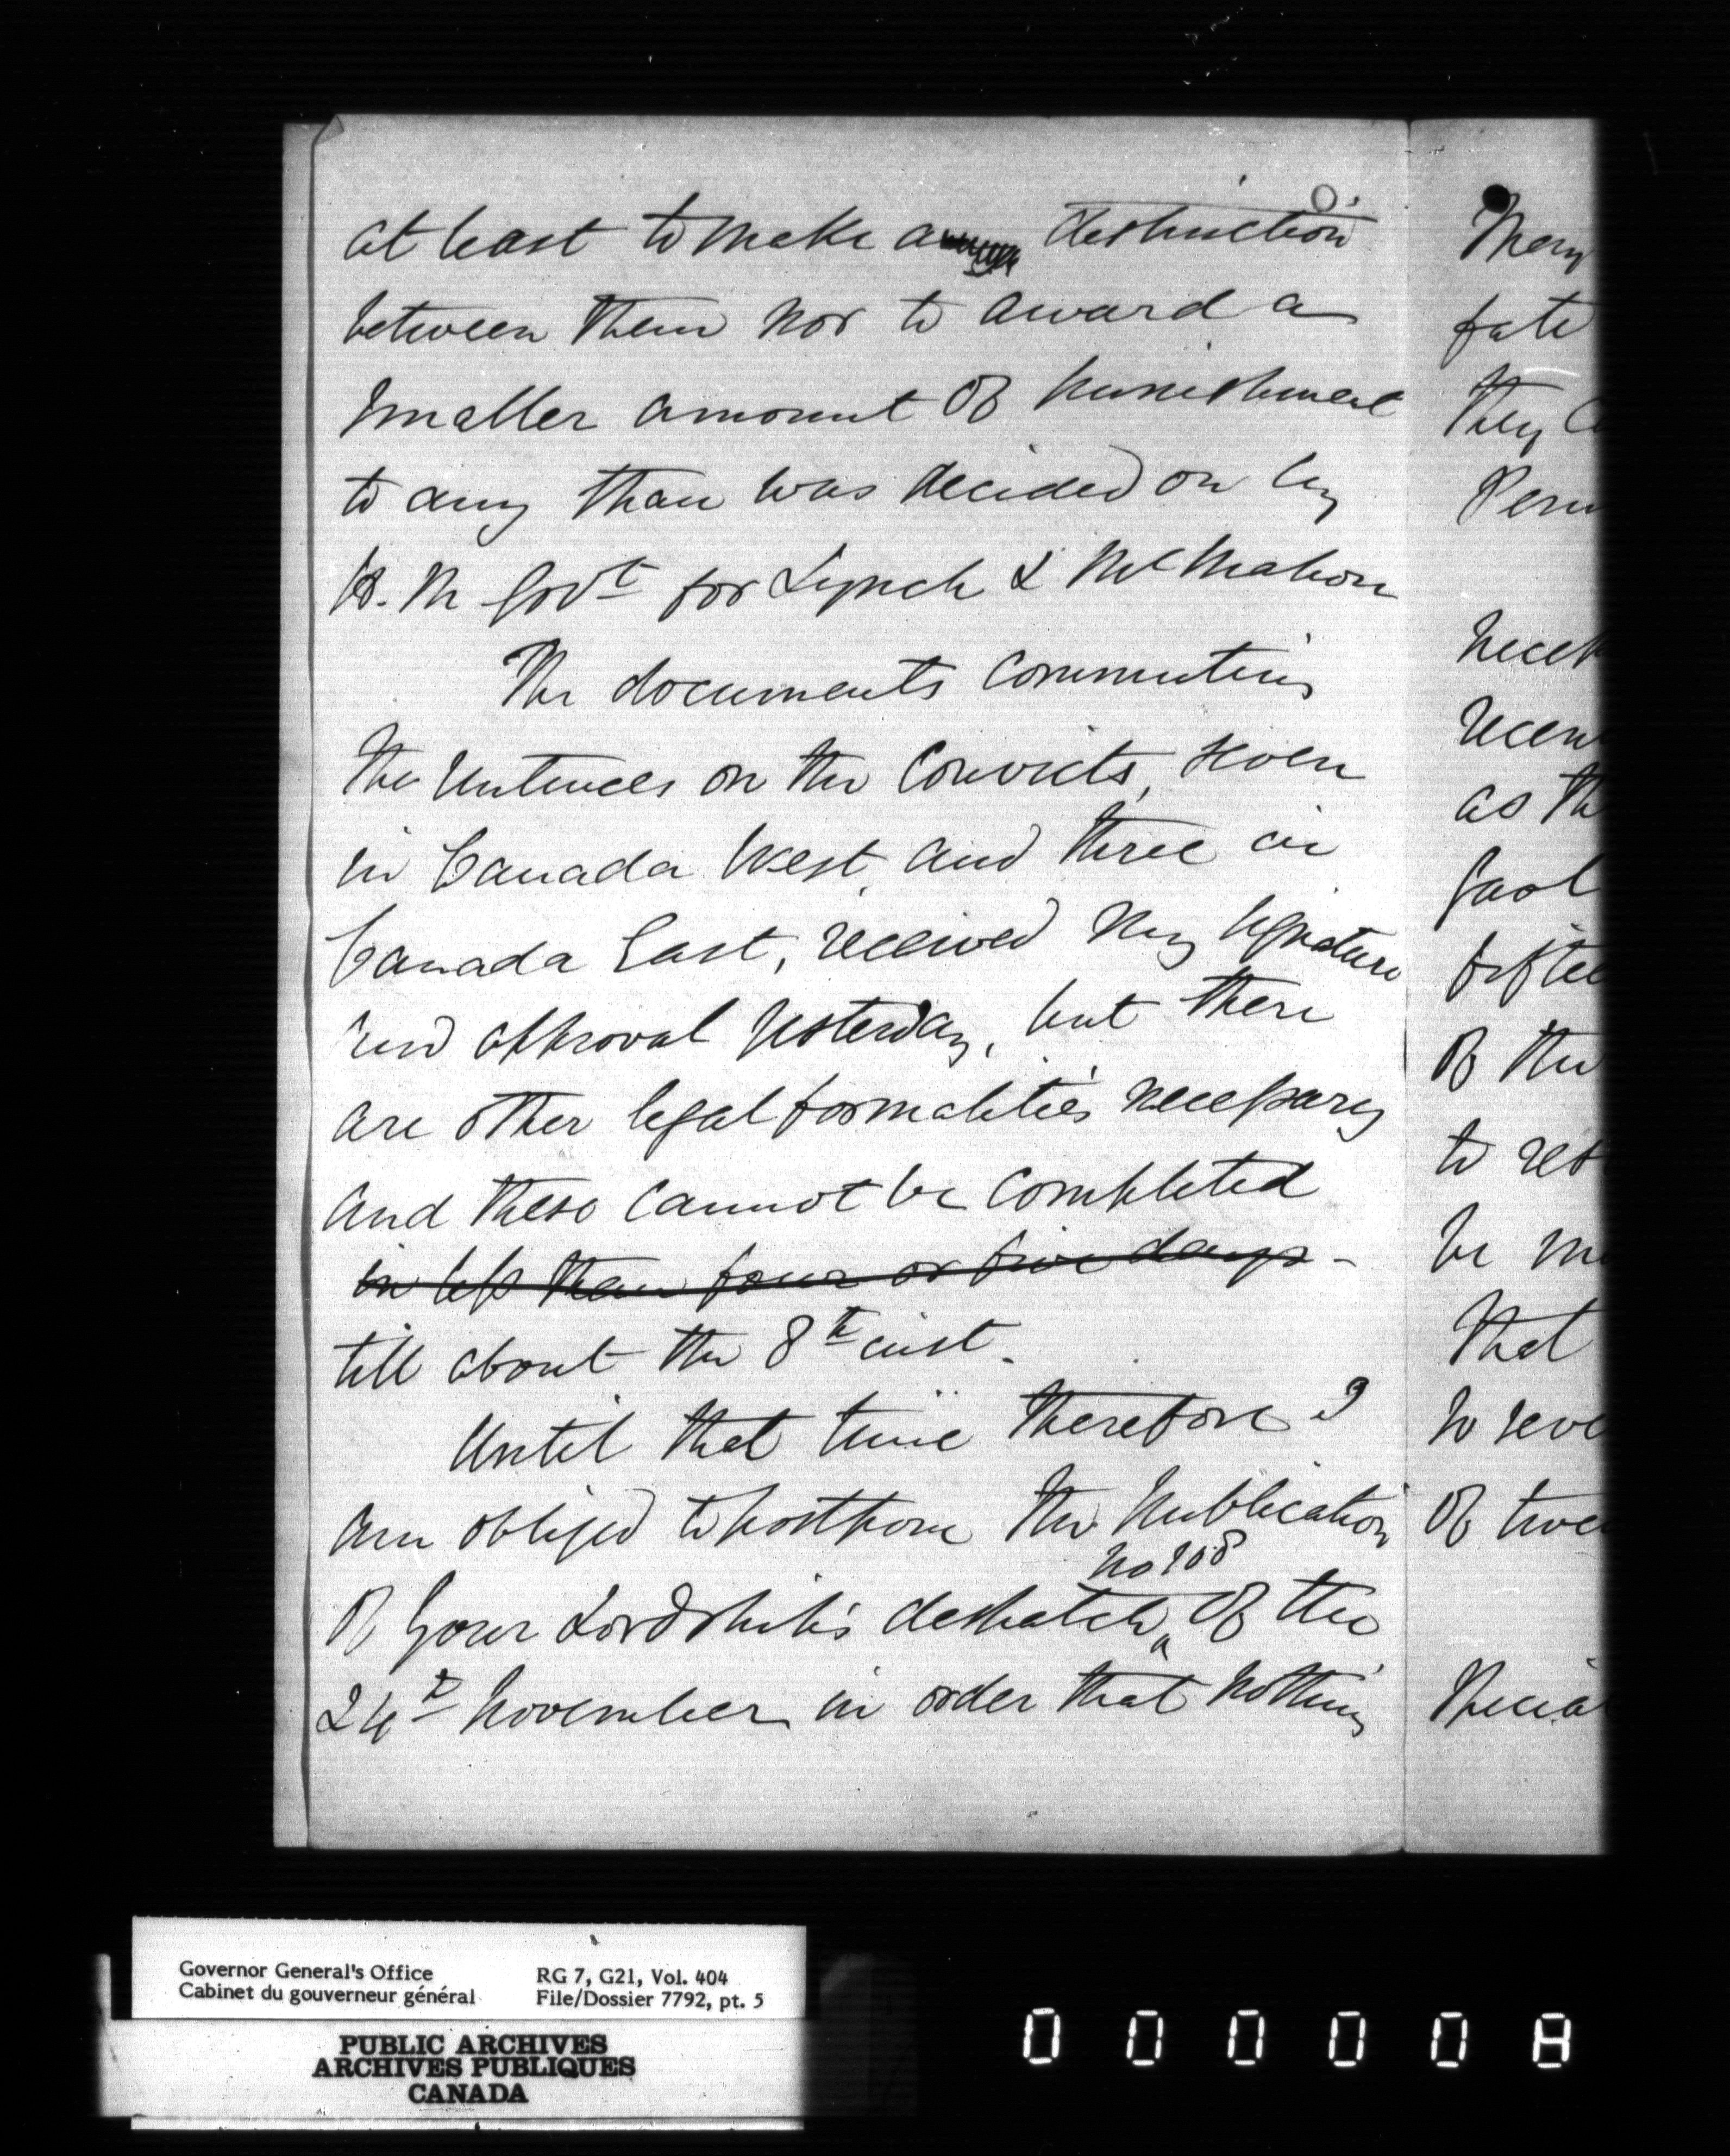 at least to make a distinction
between them nor to award a
smaller amount of punishment
to any than was decided on by
H. M Govt for Lynch & McMahon
The documents commuting
the sentences on the convicts, seven
in Canada West, and three in
Canada East, received my signature
and approval yesterday, but there
are other legal formalities necessary
and these cannot be completed
in less than four or five days -
till about the 8th inst.
Until that time therefore I
am obliged to postpone the publication
no 108
of Your Lordship's despatch of the
24th November in order that nothing
Many
fate
they
as th
Gaol
of the
to
be
that
to
of
Governor General's Office
Cabinet du gouverneur général
RG 7, G21, Vol. 404
File/Dossier 7792, pt. 5
PUBLIC ARCHIVES
ARCHIVES PUBLIQUES
CANADA
000008